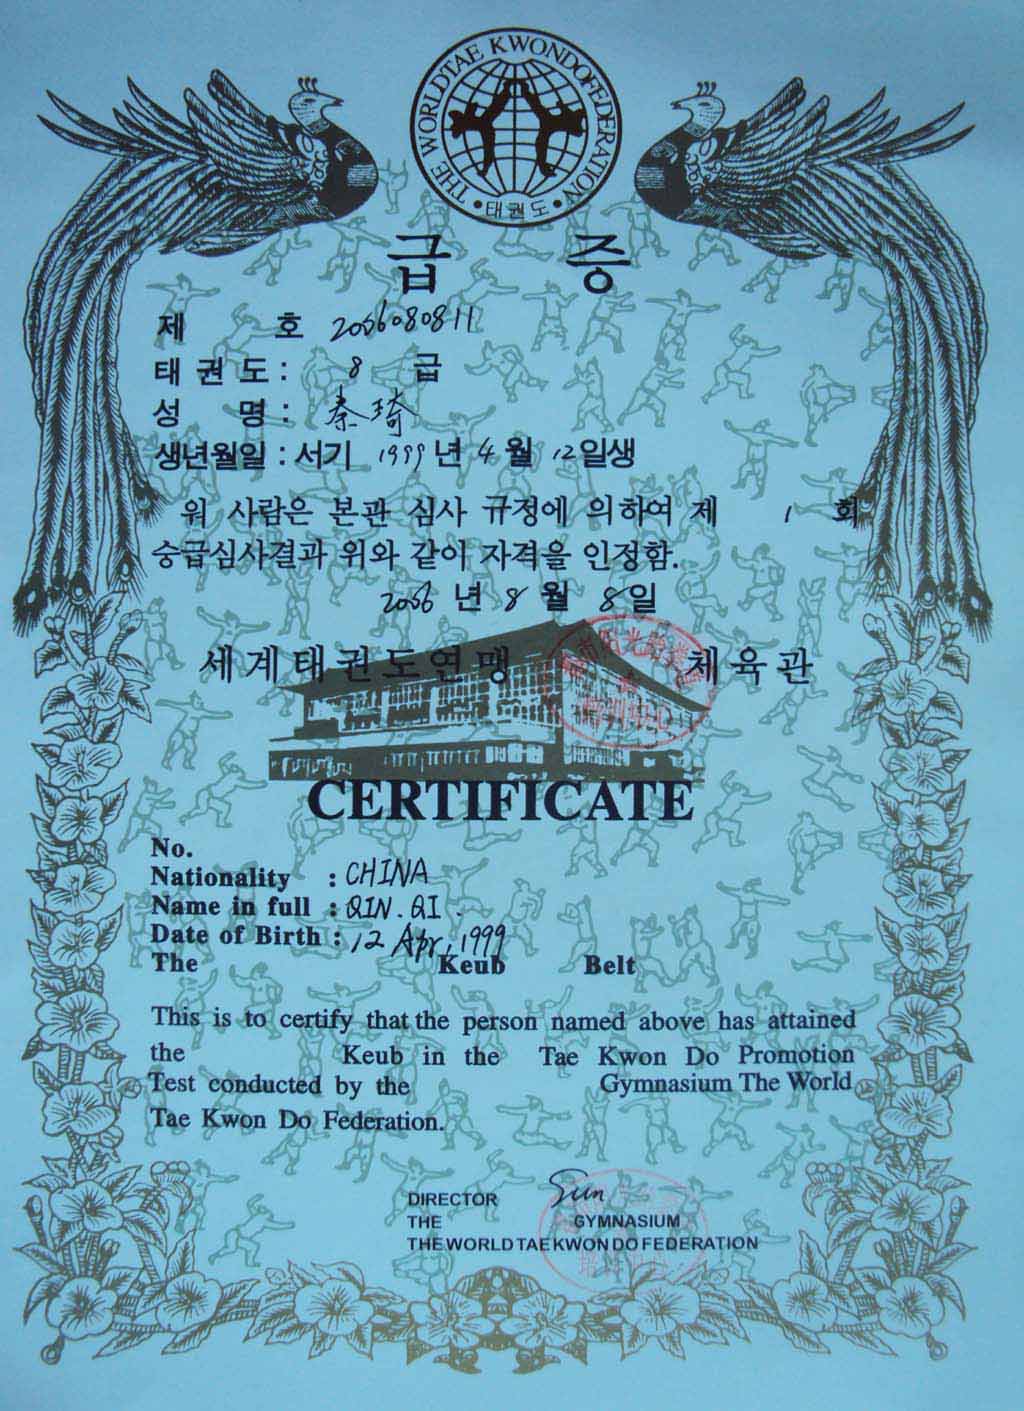 THE WORLD TAE KWONDO FEDERATION
•태권도•
급 증
제 호 2006080811
태권도: 8 급
성 명: 秦琦
생년월일:서기 1999년 4월 12일생
위 사람은 본관 심사 규정에 의하여 제 1 회
승급심사결과 위와 같이 자격을 인정함.
2006년 8월 8일
세계태권도연맹 체육관
CERTIFICATE
No.
Nationality : CHINA
Name in full : QIN.QI.
Date of Birth : 12 Apr, 1999
The Keub Belt
This is to certify that the person named above has attained
the Keub in the Tae Kwon Do Promotion
Test conducted by the Gymnasium The World
Tae Kwon Do Federation.
DIRECTOR Sun
THE GYMNASIUM
THE WORLD TAEKWON DO FEDERATION